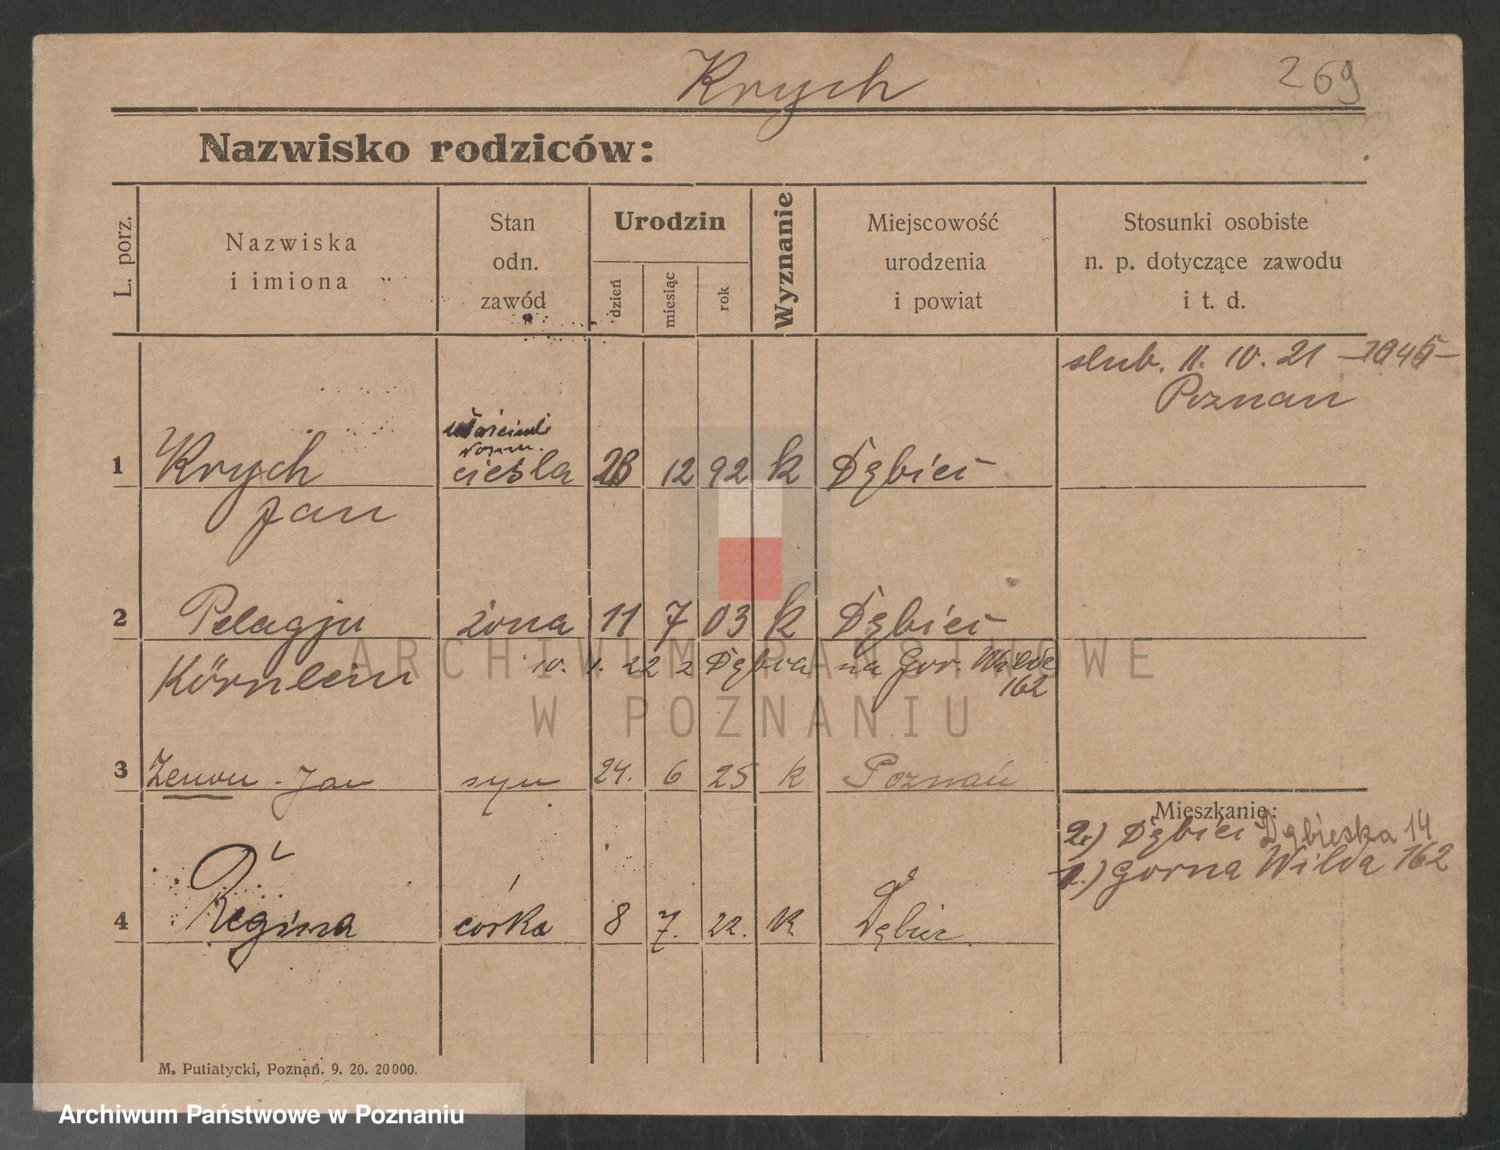 Krych
269
Nazwisko rodziców:
L. porz.
Nazwiska
i imiona
Stan
odn.
zawód
Urodzin
dzień
miesiąc
rok
Wyznanie
Miejscowość
urodzenia
i powiat
Stosunki osobiste
n. p. dotyczące zawodu
i t. d.
slub. 11. 10. 21 -1945-
Poznan
1 Krych cieśla 12 92 k Dębiec
Jan
2 Pelagja żona 11 7 03 k Dębiec
Körnlein 10. 1. 22 z Dębca na Gor. Wilde
162
3 Zenon - Jan syn 24. 6 25 k Poznań
Mieszkanie:
2.) Dębiec Dębieska 14
1.) Gorna Wilda 162
4 Regina córka 8 7. 22. k Dębiec
M. Putiatycki, Poznań. 9. 20. 20000.
ARCHIWUM PAŃSTWOWE
W POZNANIU
Archiwum Państwowe w Poznaniu